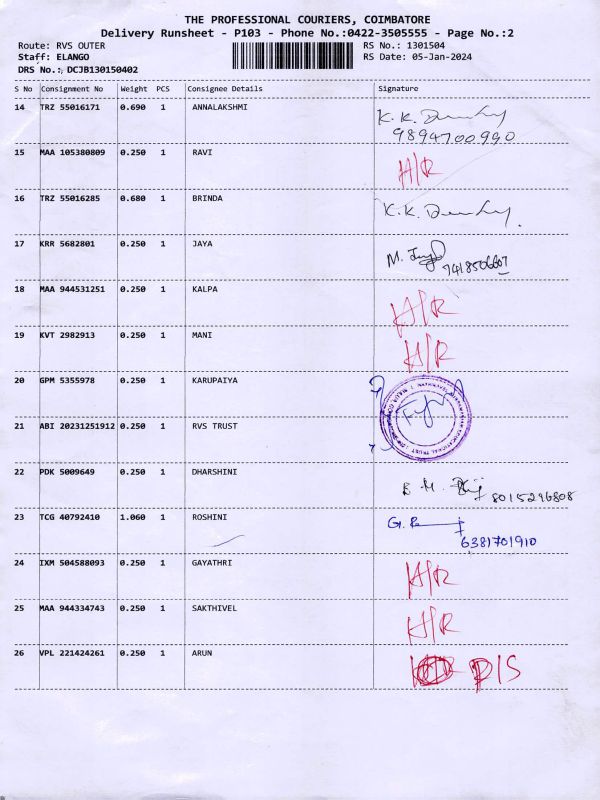 THE PROFESSIONAL COURIERS, COIMBATORE
Delivery Runsheet - P103 - Phone No.:0422-3505555 - Page No.:2
Route: RVS OUTER RS No.: 1301504
Staff: ELANGO RS Date: 05-Jan-2024
DRS No.: DCJB130150402
S No Consignment No Weight PCS Consignee Details Signature
14 TRZ 55016171 0.690 1 ANNALAKSHMI K.K.
9894700990
15 MAA 105380809 0.250 1 RAVI H/R
16 TRZ 55016285 0.680 1 BRINDA K.K.
17 KRR 5682801 0.250 1 JAYA M.
18 MAA 944531251 0.250 1 KALPA H/R
19 KVT 2982913 0.250 1 MANI H/R
20 GPM 5355978 0.250 1 KARUPAIYA
21 ABI 20231251912 0.250 1 RVS TRUST
22 PDK 5009649 0.250 1 DHARSHINI 8015296808
23 TCG 40792410 1.060 1 ROSHINI G.
6381701910
24 IXM 504588093 0.250 1 GAYATHRI H/R
25 MAA 944334743 0.250 1 SAKTHIVEL H/R
26 VPL 221424261 0.250 1 ARUN D/S